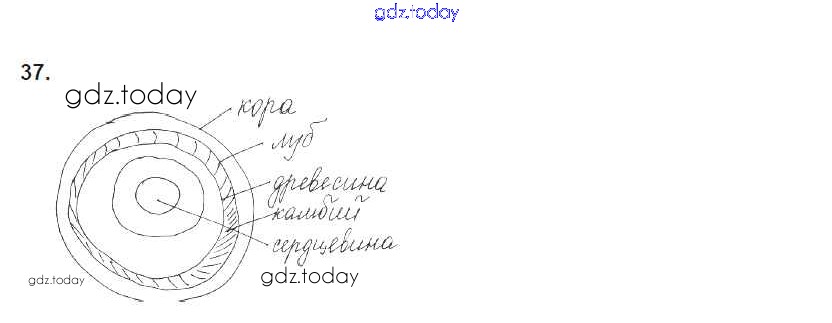 gdz.today
37.
gdz.today
кора
луб
древесина
камбий
сердцевина
gdz.today
gdz.today